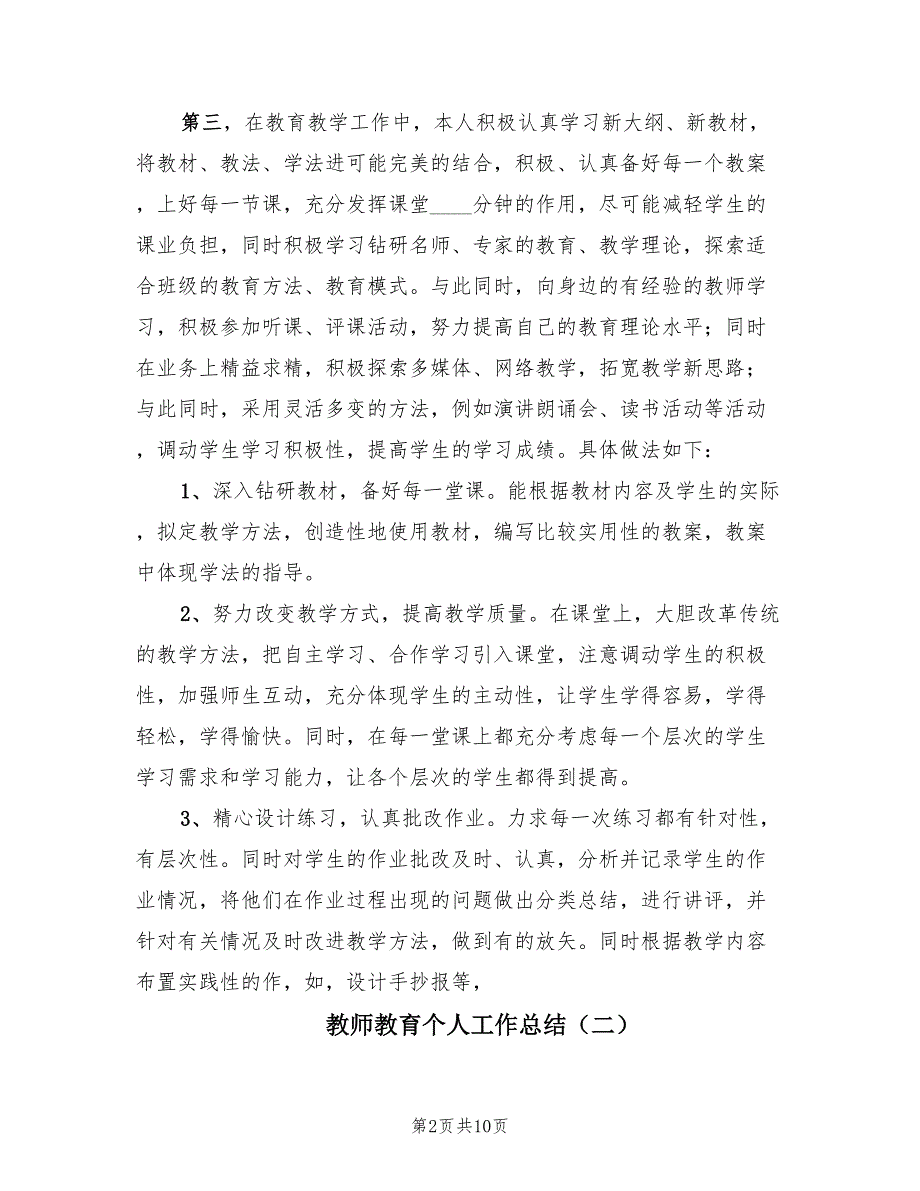 第三，在教育教学工作中，本人积极认真学习新大纲、新教材，
将教材、教法、学法进可能完美的结合，积极、认真备好每一个教案
，上好每一节课，充分发挥课堂____分钟的作用，尽可能减轻学生的
课业负担，同时积极学习钻研名师、专家的教育、教学理论，探索适
合班级的教育方法、教育模式。与此同时，向身边的有经验的教师学
习，积极参加听课、评课活动，努力提高自己的教育理论水平；同时
在业务上精益求精，积极探索多媒体、网络教学，拓宽教学新思路；
与此同时，采用灵活多变的方法，例如演讲朗诵会、读书活动等活动
，调动学生学习积极性，提高学生的学习成绩。具体做法如下：
1、深入钻研教材，备好每一堂课。能根据教材内容及学生的实际
，拟定教学方法，创造性地使用教材，编写比较实用性的教案，教案
中体现学法的指导。
2、努力改变教学方式，提高教学质量。在课堂上，大胆改革传统
的教学方法，把自主学习、合作学习引入课堂，注意调动学生的积极
性，加强师生互动，充分体现学生的主动性，让学生学得容易，学得
轻松，学得愉快。同时，在每一堂课上都充分考虑每一个层次的学生
学习需求和学习能力，让各个层次的学生都得到提高。
3、精心设计练习，认真批改作业。力求每一次练习都有针对性，
有层次性。同时对学生的作业批改及时、认真，分析并记录学生的作
业情况，将他们在作业过程出现的问题做出分类总结，进行讲评，并
针对有关情况及时改进教学方法，做到有的放矢。同时根据教学内容
布置实践性的作，如，设计手抄报等，
教师教育个人工作总结（二）
第2页共10页